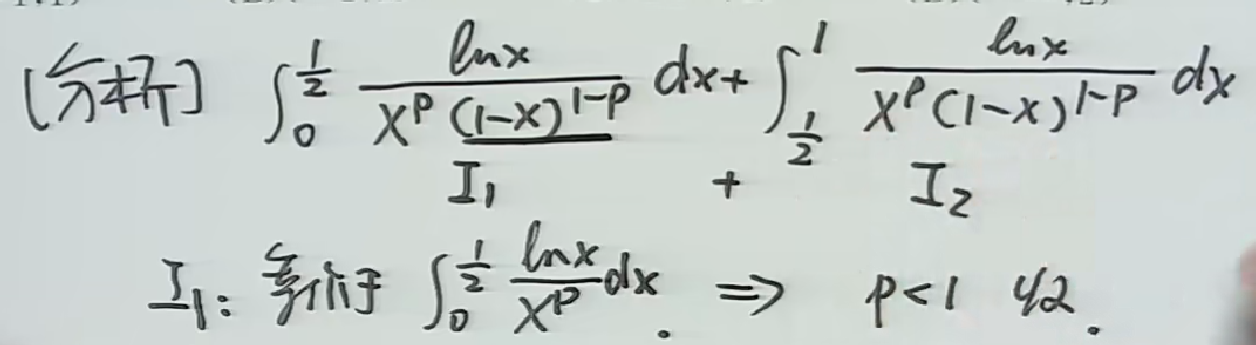 [分析] ∫₀^{1/2} lnx / (x^p (1-x)^{1-p}) dx + ∫_{1/2}^1 lnx / (x^p (1-x)^{1-p}) dx
I₁ + I₂
I₁: 等价于 ∫₀^{1/2} lnx / x^p dx. ⇒ p<1 收.